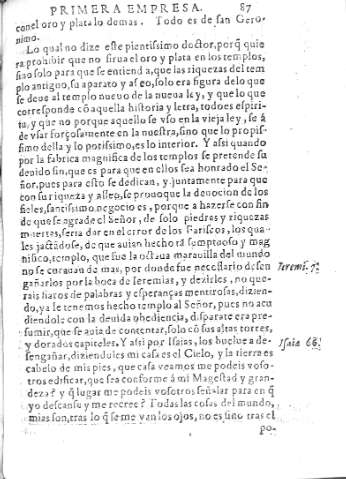 PRIMERA EMPRESA. 87
con el oro y plata lo demas. Todo es de san Gero-
nimo.
Lo qual no dize este pientissimo doctor, porq̃ quie
ra prohibir que no sirua el oro y plata en los templos,
sino solo para que se entienda, que las riquezas del tem
plo antiguo, su aparato y aseo, solo era figura de lo que
se deue al templo nueuo de la nueua ley, y que lo que
corresponde cõ aquella historia y letra, todo es espiri-
tu, y que no porque aquello se vso en la vieja ley, se á
de vsar forçosamente en la nuestra, sino que lo propis-
simo della y lo potissimo, es lo interior. Y assi quando
por la fabrica magnifica de los templos se pretende su
deuido fin, que es para que en ellos sea honrado el Se-
ñor, pues para esto se dedican, y juntamente para que
con su riqueza y asseo, se prouoque la deuocion de los
fieles, santissimo negocio es, porque a hazerse con fin
de que se agrade el Señor, de solo piedras y riquezas
muertas, seria dar en el error de los Fariseos, los qua-
les jactãdose, de que auian hecho vn sumptuoso y mag
nifico templo, que fue la octaua marauilla del mundo
no se curauan de mas, por donde fue necessario desen
gañarlos por la boca de Ieremias, y dezirles, no que-
rais fiaros de palabras y esperanças mentirosas, dizien-
do, ya le tenemos hecho templo al Señor, pues no acu
diendole con la deuida obediencia, disparate era pre-
sumir, que se auia de contentar, solo cõ sus altas torres,
y dorados capiteles. Y assi por Isaias, los buelue a de-
sengañar, diziendoles mi casa es el Cielo, y la tierra es
cabelo de mis pies, que casa veamos me podeis voso-
tros edificar, que sea conforme á mi Magestad y gran-
deza? y q̃ lugar me podeis vosotros señalar para en q̃
yo descanse y me recree? Todas las cosas del mundo,
mias son, tras lo q̃ se me van los ojos, no es sino tras el
po-
Ieremi. 7.
Isaia 66.